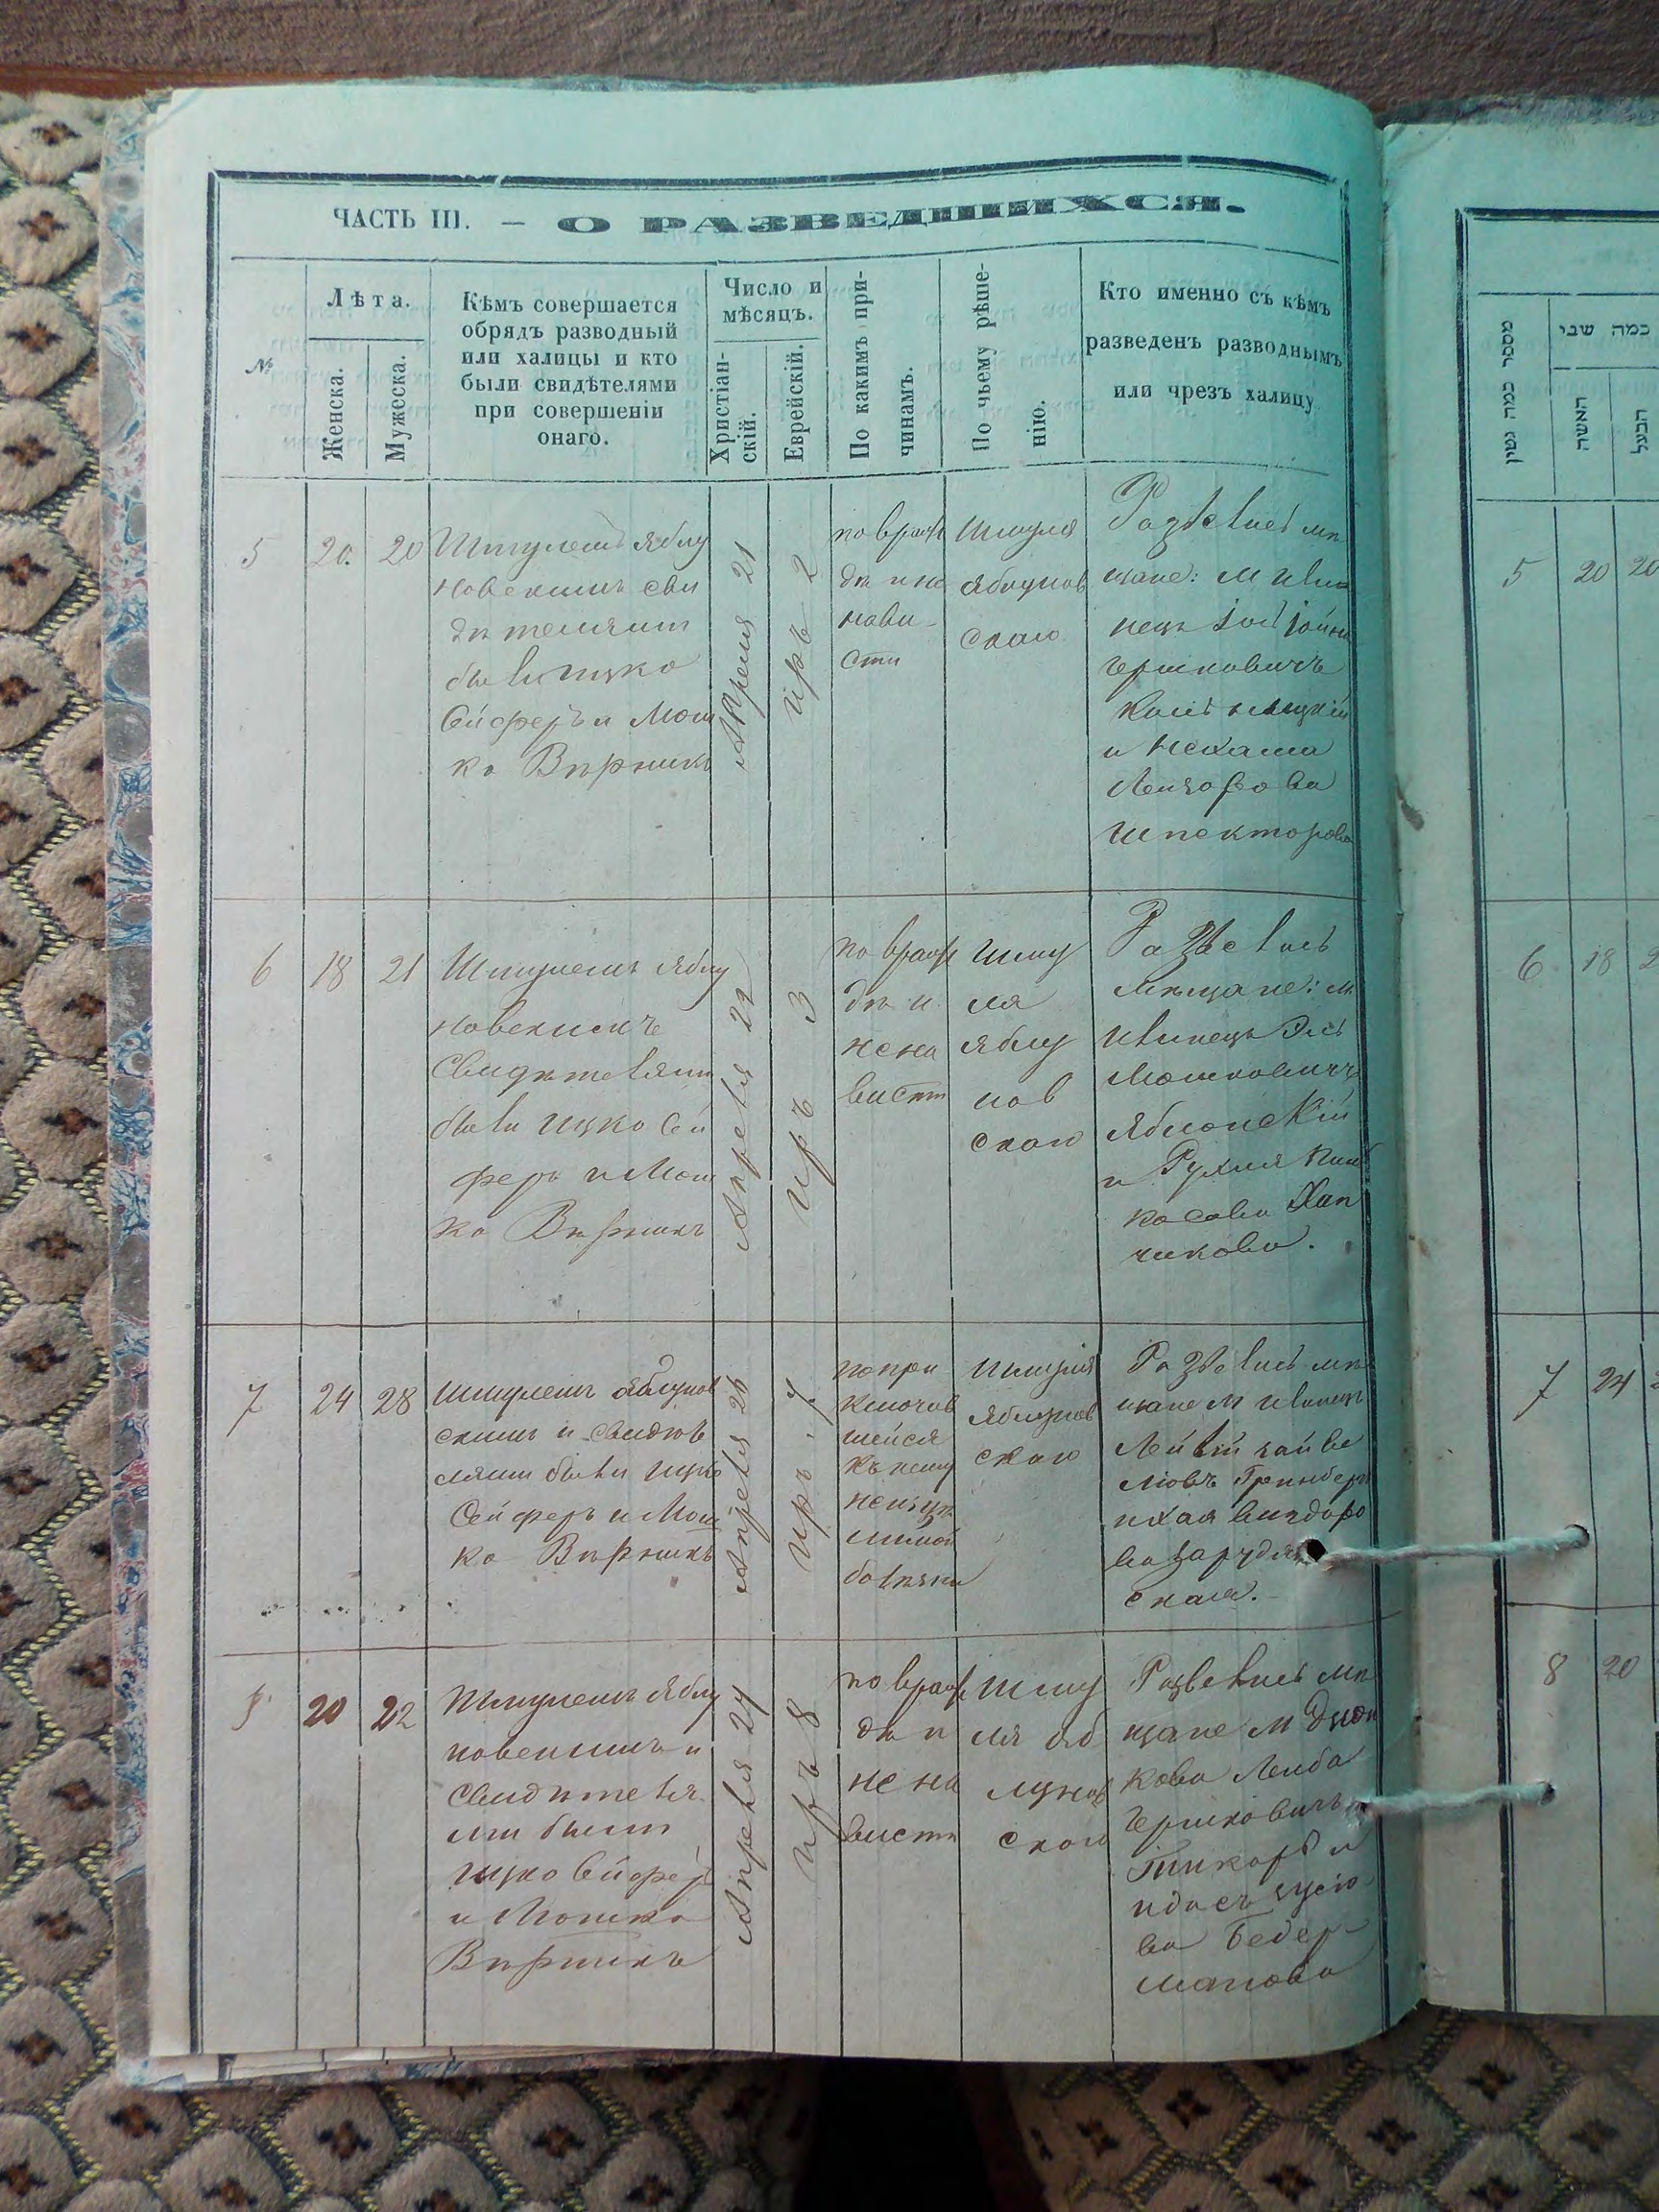 ЧАСТЬ III. — О РАЗВЕДШИХСЯ.
№
Лѣта.
Женска.
Мужеска.
Кѣмъ совершается
обрядъ разводный
или халицы и кто
были свидѣтелями
при совершеніи
онаго.
Число и
мѣсяцъ.
Христіан-
скій.
Еврейскій.
По какимъ при-
чинамъ.
По чьему рѣше-
нію.
Кто именно съ кѣмъ
разведенъ разводнымъ
или чрезъ халицу
5
20.
20
Шмулемъ Яблу
новскимъ сви
дѣтелями
были Ицко
Сейферъ и Мош
ко Вѣрникъ
Апреля 21
Иръ 2
по враж
дѣ и не
нави
сти
Шмуля
Яблунов
скаго
Развелись мѣ
щане: М Ивни
цкъ
Гершковичъ
и Нехама
Лейзорова
Шпекторова
6
18
21
Шмулемъ Яблу
новскимъ
Свидѣтелями
были Ицко Сей
феръ и Мош
ко Вѣрникъ
Апреля 22
Иръ 3
по враж
дѣ и
нена
висти
Шму
ля
Яблу
нов
скаго
Развелись
Мѣщане: М.
Мошковичъ
Яблонскій
и Рухля Пин
касова Хап
чикова.
7
24
28
Шмулемъ Яблунов
скимъ и свидѣте
лями были Ицко
Сейферъ и Мош
ко Вѣрникъ
Апреля 26
Иръ 7
по при
ключив
шейся
къ нему
неизцѣ
лимой
болѣзни
Шмуля
Яблунов
скаго
Развелись мѣ
щане М
Гринберг
ская.
8
20
22
Шмулемъ Яблу
новскимъ и
свидѣтеля
ми были
Ицко Сейферъ
и Мошко
Вѣрникъ
Апреля 27
Иръ 8
по враж
дѣ и
нена
висти
Шму
ля Яб
лунов
скаго
Развелись мѣ
щане М Дзюн
кова Лейба
Гершковичъ
ва Бедер
манова
מספר כמה גטין
כמה שני
האשה
הבעל
5
20
20
6
18
7
24
8
20